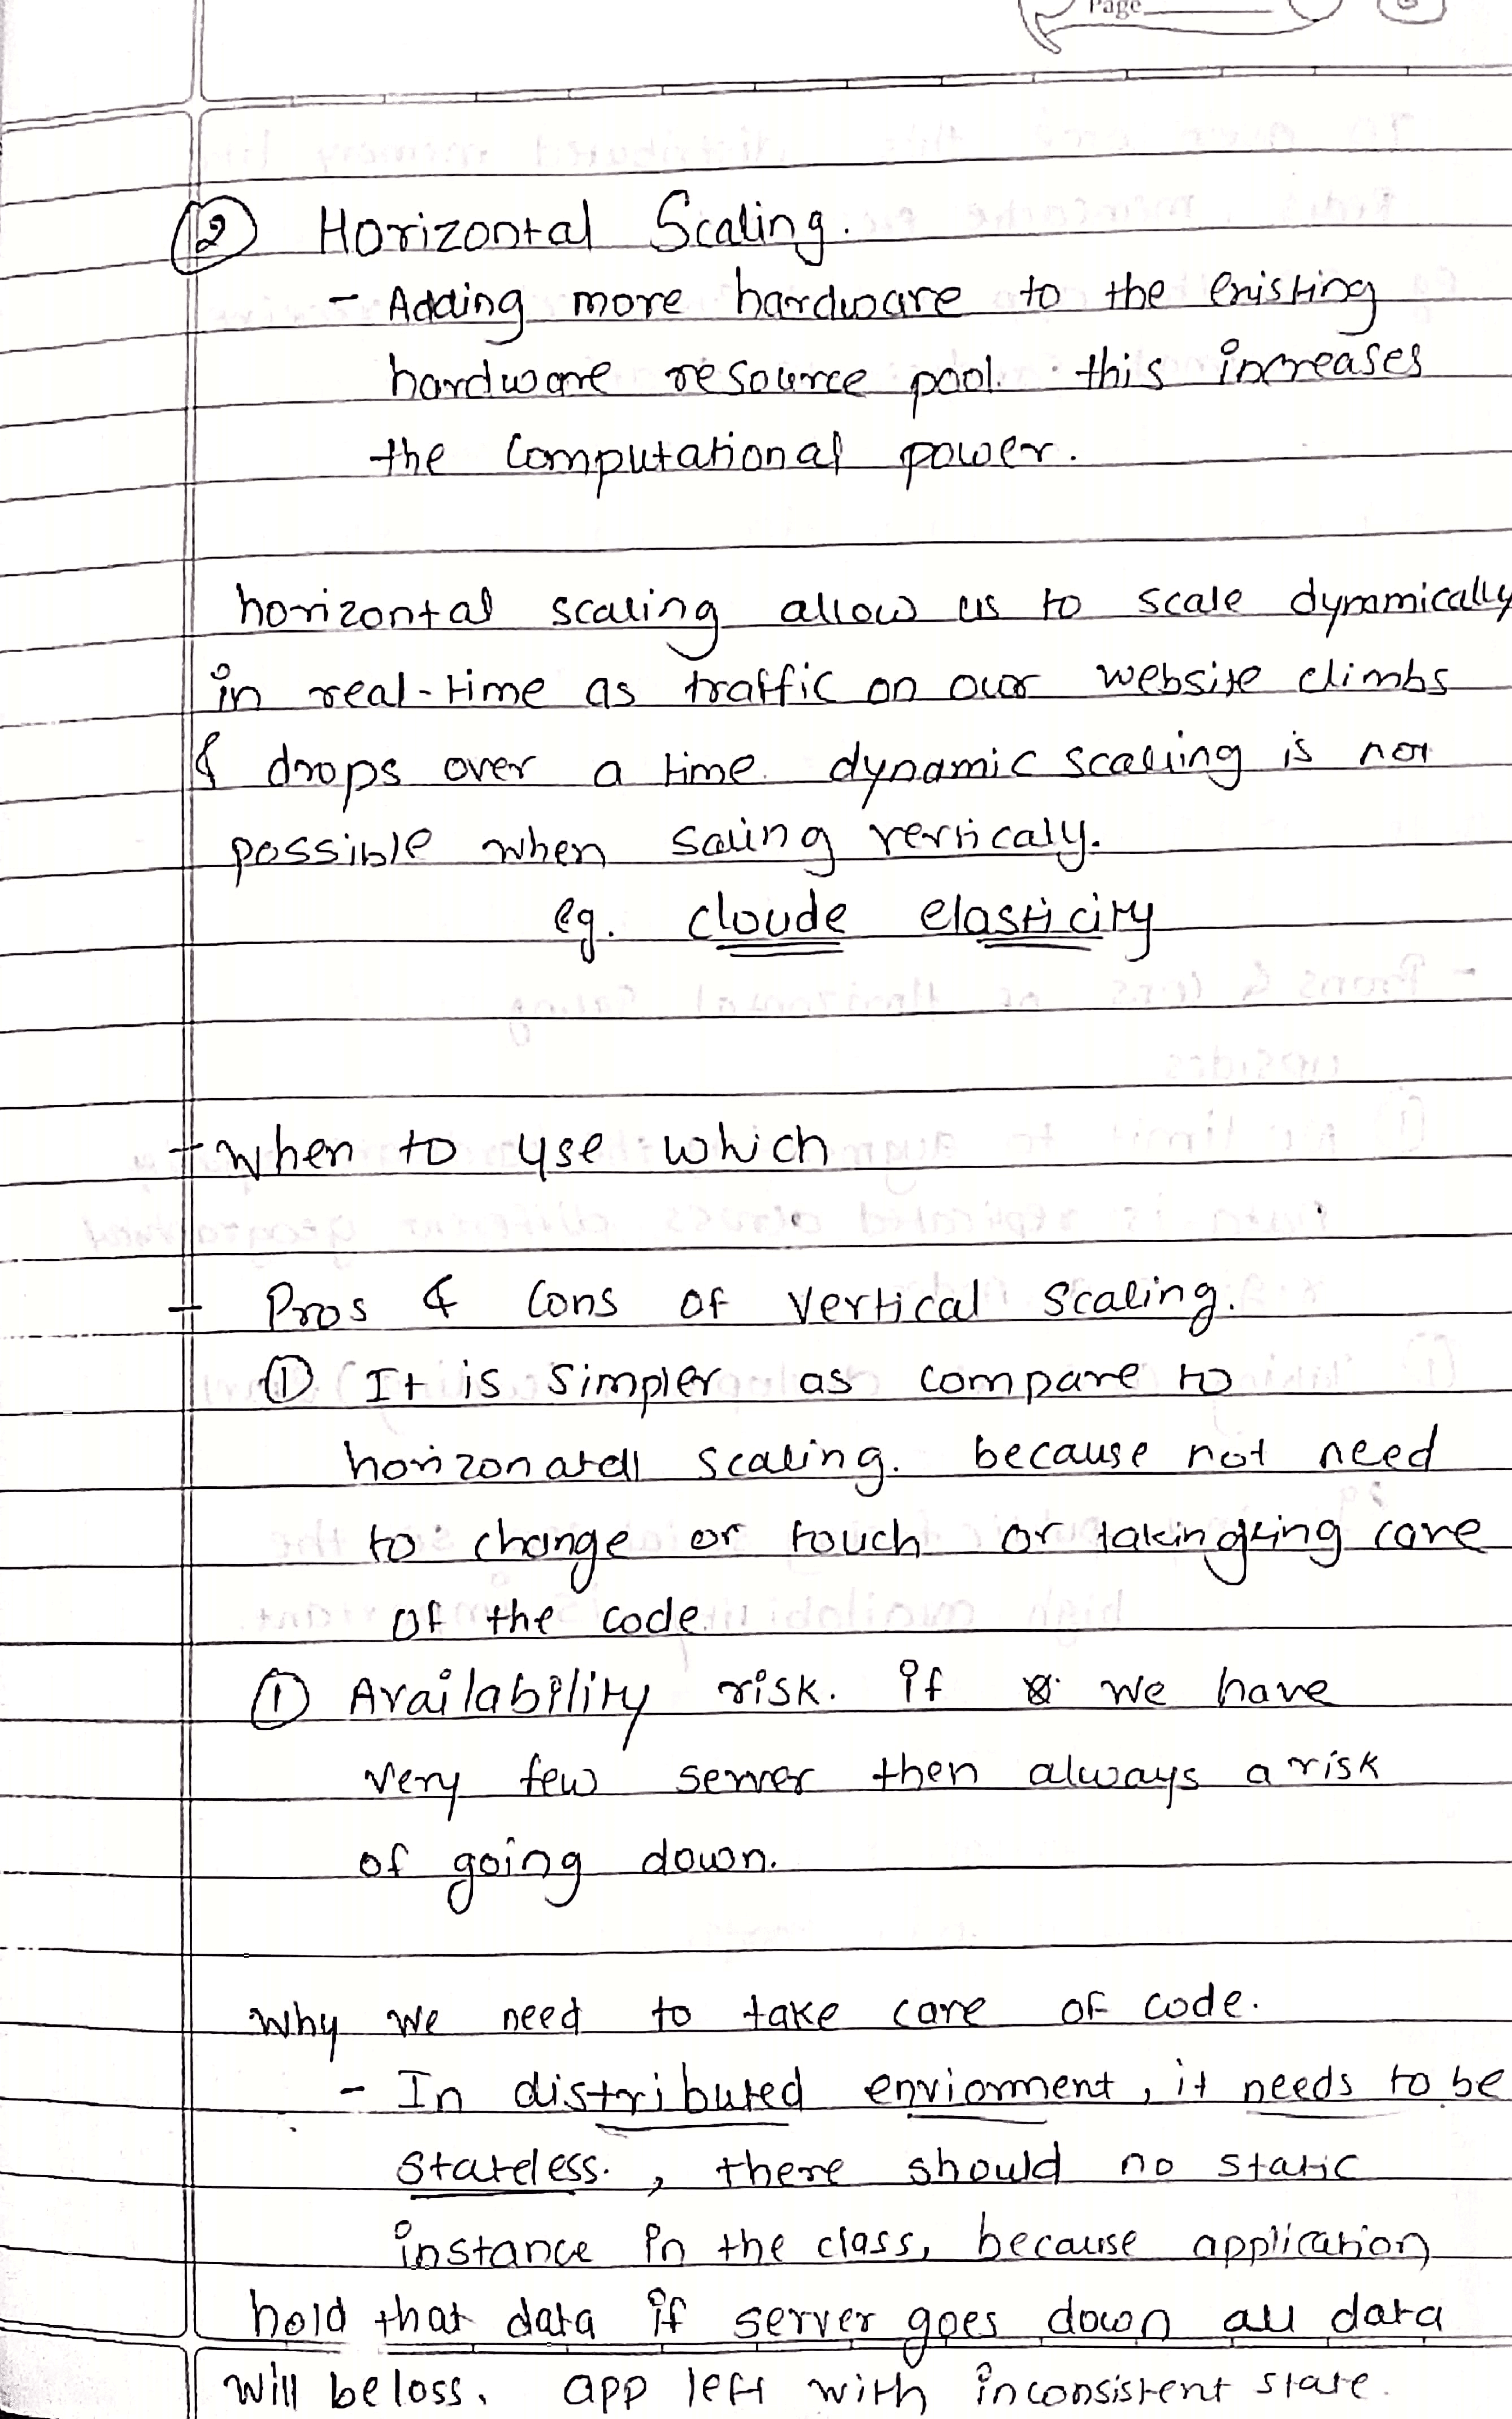 Page
② Horizontal Scaling.
- Adding more hardware to the existing
hardware resource pool. this increases
the computational power.
horizontal scaling allow us to scale dynamically
in real-time as traffic on our website climbs
& drops over a time. dynamic scaling is not
possible when saling verticaly.
eg. cloude elasticity
+ when to use which
+ Pros & Cons of Vertical Scaling.
① It is simpler as compare to
horizonatall scaling. because not need
to change or touch or takingking care
of the code.
① Availability risk. if we have
very few server then always a risk
of going down.
Why we need to take care of code.
- In distributed enviorment, it needs to be
stateless. , there should no static
instance in the class, because application
hold that data if server goes down all data
will be loss. app left with inconsistent state.